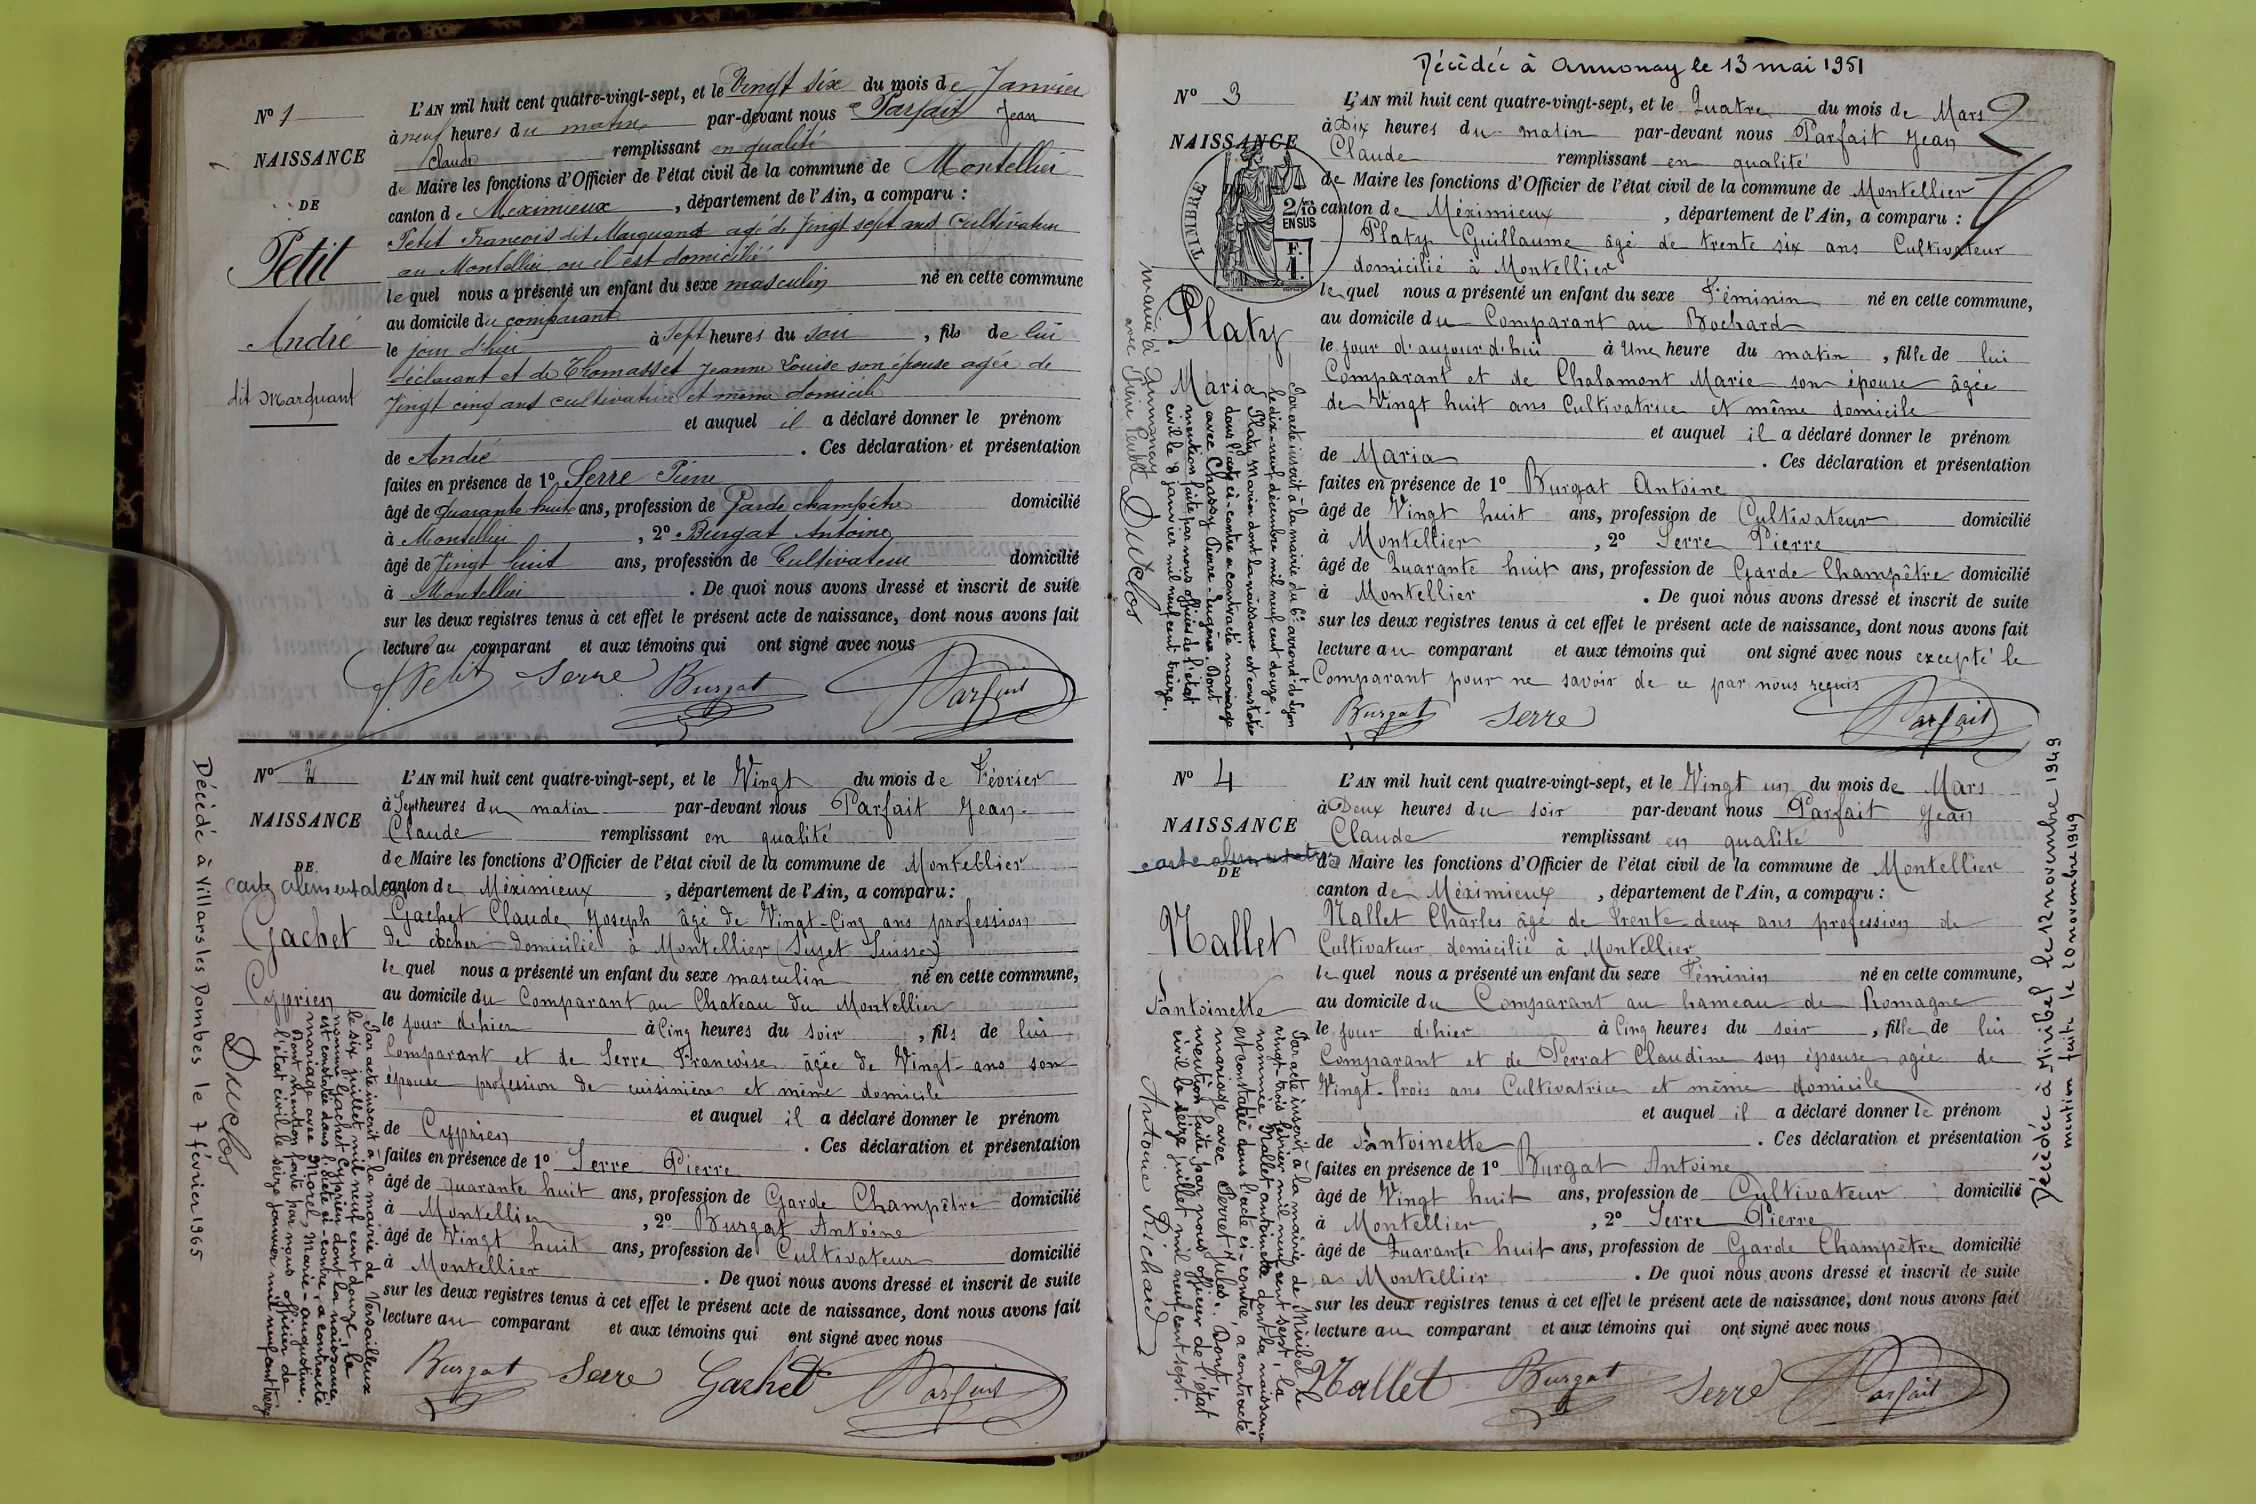 Nº 1
NAISSANCE
DE
Petit
André
dit Marquant
L'AN mil huit cent quatre-vingt-sept, et le Vingt six du mois de Janvier
à neuf heures du matin par-devant nous Parfait Jean
Claude remplissant en qualité
de Maire les fonctions d'Officier de l'état civil de la commune de Montellier
canton de Meximieux, département de l'Ain, a comparu :
Petit François dit Marquand agé de Vingt sept ans Cultivateur
au Montellier ou il est domicilié
lequel nous a présenté un enfant du sexe masculin né en cette commune
au domicile du comparant
le jour d'hier à sept heures du soir, fils de lui
déclarant et de Thomasset Jeanne Louise son épouse agée de
Vingt cinq ans cultivatrice et même domicile
et auquel il a déclaré donner le prénom
de André. Ces déclaration et présentation
faites en présence de 1º Serre Pierre
âgé de Quarante huit ans, profession de Garde champêtre domicilié
à Montellier, 2º Burgat Antoine
âgé de Vingt huit ans, profession de Cultivateur domicilié
à Montellier. De quoi nous avons dressé et inscrit de suite
sur les deux registres tenus à cet effet le présent acte de naissance, dont nous avons fait
lecture au comparant et aux témoins qui ont signé avec nous
Petit Serre Burgat Parfait
Nº 2
NAISSANCE
DE
carte alimentation
Gachet
Cyprien
L'AN mil huit cent quatre-vingt-sept, et le Vingt du mois de Février
à Sept heures du matin par-devant nous Parfait Jean
Claude remplissant en qualité
de Maire les fonctions d'Officier de l'état civil de la commune de Montellier
canton de Méximieux, département de l'Ain, a comparu :
Gachet Claude Joseph âgé de Vingt-Cinq ans profession
de cocher domicilié à Montellier (Sujet Suisse)
lequel nous a présenté un enfant du sexe masculin né en cette commune,
au domicile du Comparant au Chateau du Montellier
le jour d'hier à Cinq heures du soir, fils de lui
Comparant et de Serre Francoise âgée de Vingt ans son
épouse profession de cuisinière et même domicile
et auquel il a déclaré donner le prénom
de Cyprien. Ces déclaration et présentation
faites en présence de 1º Serre Pierre
âgé de quarante huit ans, profession de Garde Champêtre domicilié
à Montellier, 2º Burgat Antoine
âgé de Vingt huit ans, profession de Cultivateur domicilié
à Montellier. De quoi nous avons dressé et inscrit de suite
sur les deux registres tenus à cet effet le présent acte de naissance, dont nous avons fait
lecture au comparant et aux témoins qui ont signé avec nous
Burgat Serre Gachet Parfait
Par acte inscrit à la mairie de Versailleux
le six juillet mil neuf cent douze, le
nommé Gachet Cyprien dont la naissance
est constatée dans l'acte ci-contre, a contracté
mariage avec Morel, Marie-Augustine.
Dont mention faite par nous officier de
l'état civil le seize janvier mil neuf cent treize
Duclos
Décédé à Villars les Dombes le 7 février 1965
Décédée à Annonay le 13 mai 1951
Nº 3
NAISSANCE
TIMBRE
2/10 EN SUS
F. 1.
Platy
Maria
L'AN mil huit cent quatre-vingt-sept, et le Quatre du mois de Mars
2
à Dix heures du matin par-devant nous Parfait Jean
Claude remplissant en qualité
de Maire les fonctions d'Officier de l'état civil de la commune de Montellier
canton de Méximieux, département de l'Ain, a comparu :
Platy Guillaume âgé de trente six ans Cultivateur
domicilié à Montellier
lequel nous a présenté un enfant du sexe Féminin né en cette commune,
au domicile du Comparant au Bochard
le jour d'aujourd'hui à Une heure du matin, fille de lui
Comparant et de Chalamont Marie son épouse âgée
de Vingt huit ans Cultivatrice et même domicile
et auquel il a déclaré donner le prénom
de Maria. Ces déclaration et présentation
faites en présence de 1º Burgat Antoine
âgé de Vingt huit ans, profession de Cultivateur domicilié
à Montellier, 2º Serre Pierre
âgé de Quarante huit ans, profession de Garde Champêtre domicilié
à Montellier. De quoi nous avons dressé et inscrit de suite
sur les deux registres tenus à cet effet le présent acte de naissance, dont nous avons fait
lecture au comparant et aux témoins qui ont signé avec nous excepté le
Comparant pour ne savoir de ce par nous requis
Burgat Serre Parfait
Par acte inscrit à la mairie du 6e arrond. de Lyon
le dix-neuf décembre mil neuf cent douze,
Platy Maria dont la naissance est constatée
dans l'acte ci-contre a contracté mariage
avec Chassy Pierre-Eugène. Dont
mention faite par nous officier de l'état
civil le 8 janvier mil neuf cent treize.
Duclos
mariée à Annonay
avec
Nº 4
NAISSANCE
carte alimentation
DE
Mallet
Antoinette
L'AN mil huit cent quatre-vingt-sept, et le Vingt un du mois de Mars
à Deux heures du soir par-devant nous Parfait Jean
Claude remplissant en qualité
de Maire les fonctions d'Officier de l'état civil de la commune de Montellier
canton de Méximieux, département de l'Ain, a comparu :
Mallet Charles âgé de trente deux ans profession de
Cultivateur domicilié à Montellier
lequel nous a présenté un enfant du sexe Féminin né en cette commune,
au domicile du Comparant au hameau de Romagne
le jour d'hier à Cinq heures du soir, fille de lui
Comparant et de Perrat Claudine son épouse agée de
Vingt-trois ans Cultivatrice et même domicile
et auquel il a déclaré donner le prénom
de Antoinette. Ces déclaration et présentation
faites en présence de 1º Burgat Antoine
âgé de Vingt huit ans, profession de Cultivateur domicilié
à Montellier, 2º Serre Pierre
âgé de Quarante huit ans, profession de Garde Champêtre domicilié
à Montellier. De quoi nous avons dressé et inscrit de suite
sur les deux registres tenus à cet effet le présent acte de naissance, dont nous avons fait
lecture au comparant et aux témoins qui ont signé avec nous
Mallet Burgat Serre Parfait
Par acte inscrit à la mairie de Miribel le
vingt-trois février mil neuf cent sept, la
nommée Mallet Antoinette dont la naissance
est constatée dans l'acte ci-contre, a contracté
mariage avec Perret Jules. Dont
mention faite par nous officier de l'état
civil le seize juillet mil neuf cent sept.
Antoine Richard
Décédée à Miribel le 12 novembre 1949
mention faite le 20 novembre 1949